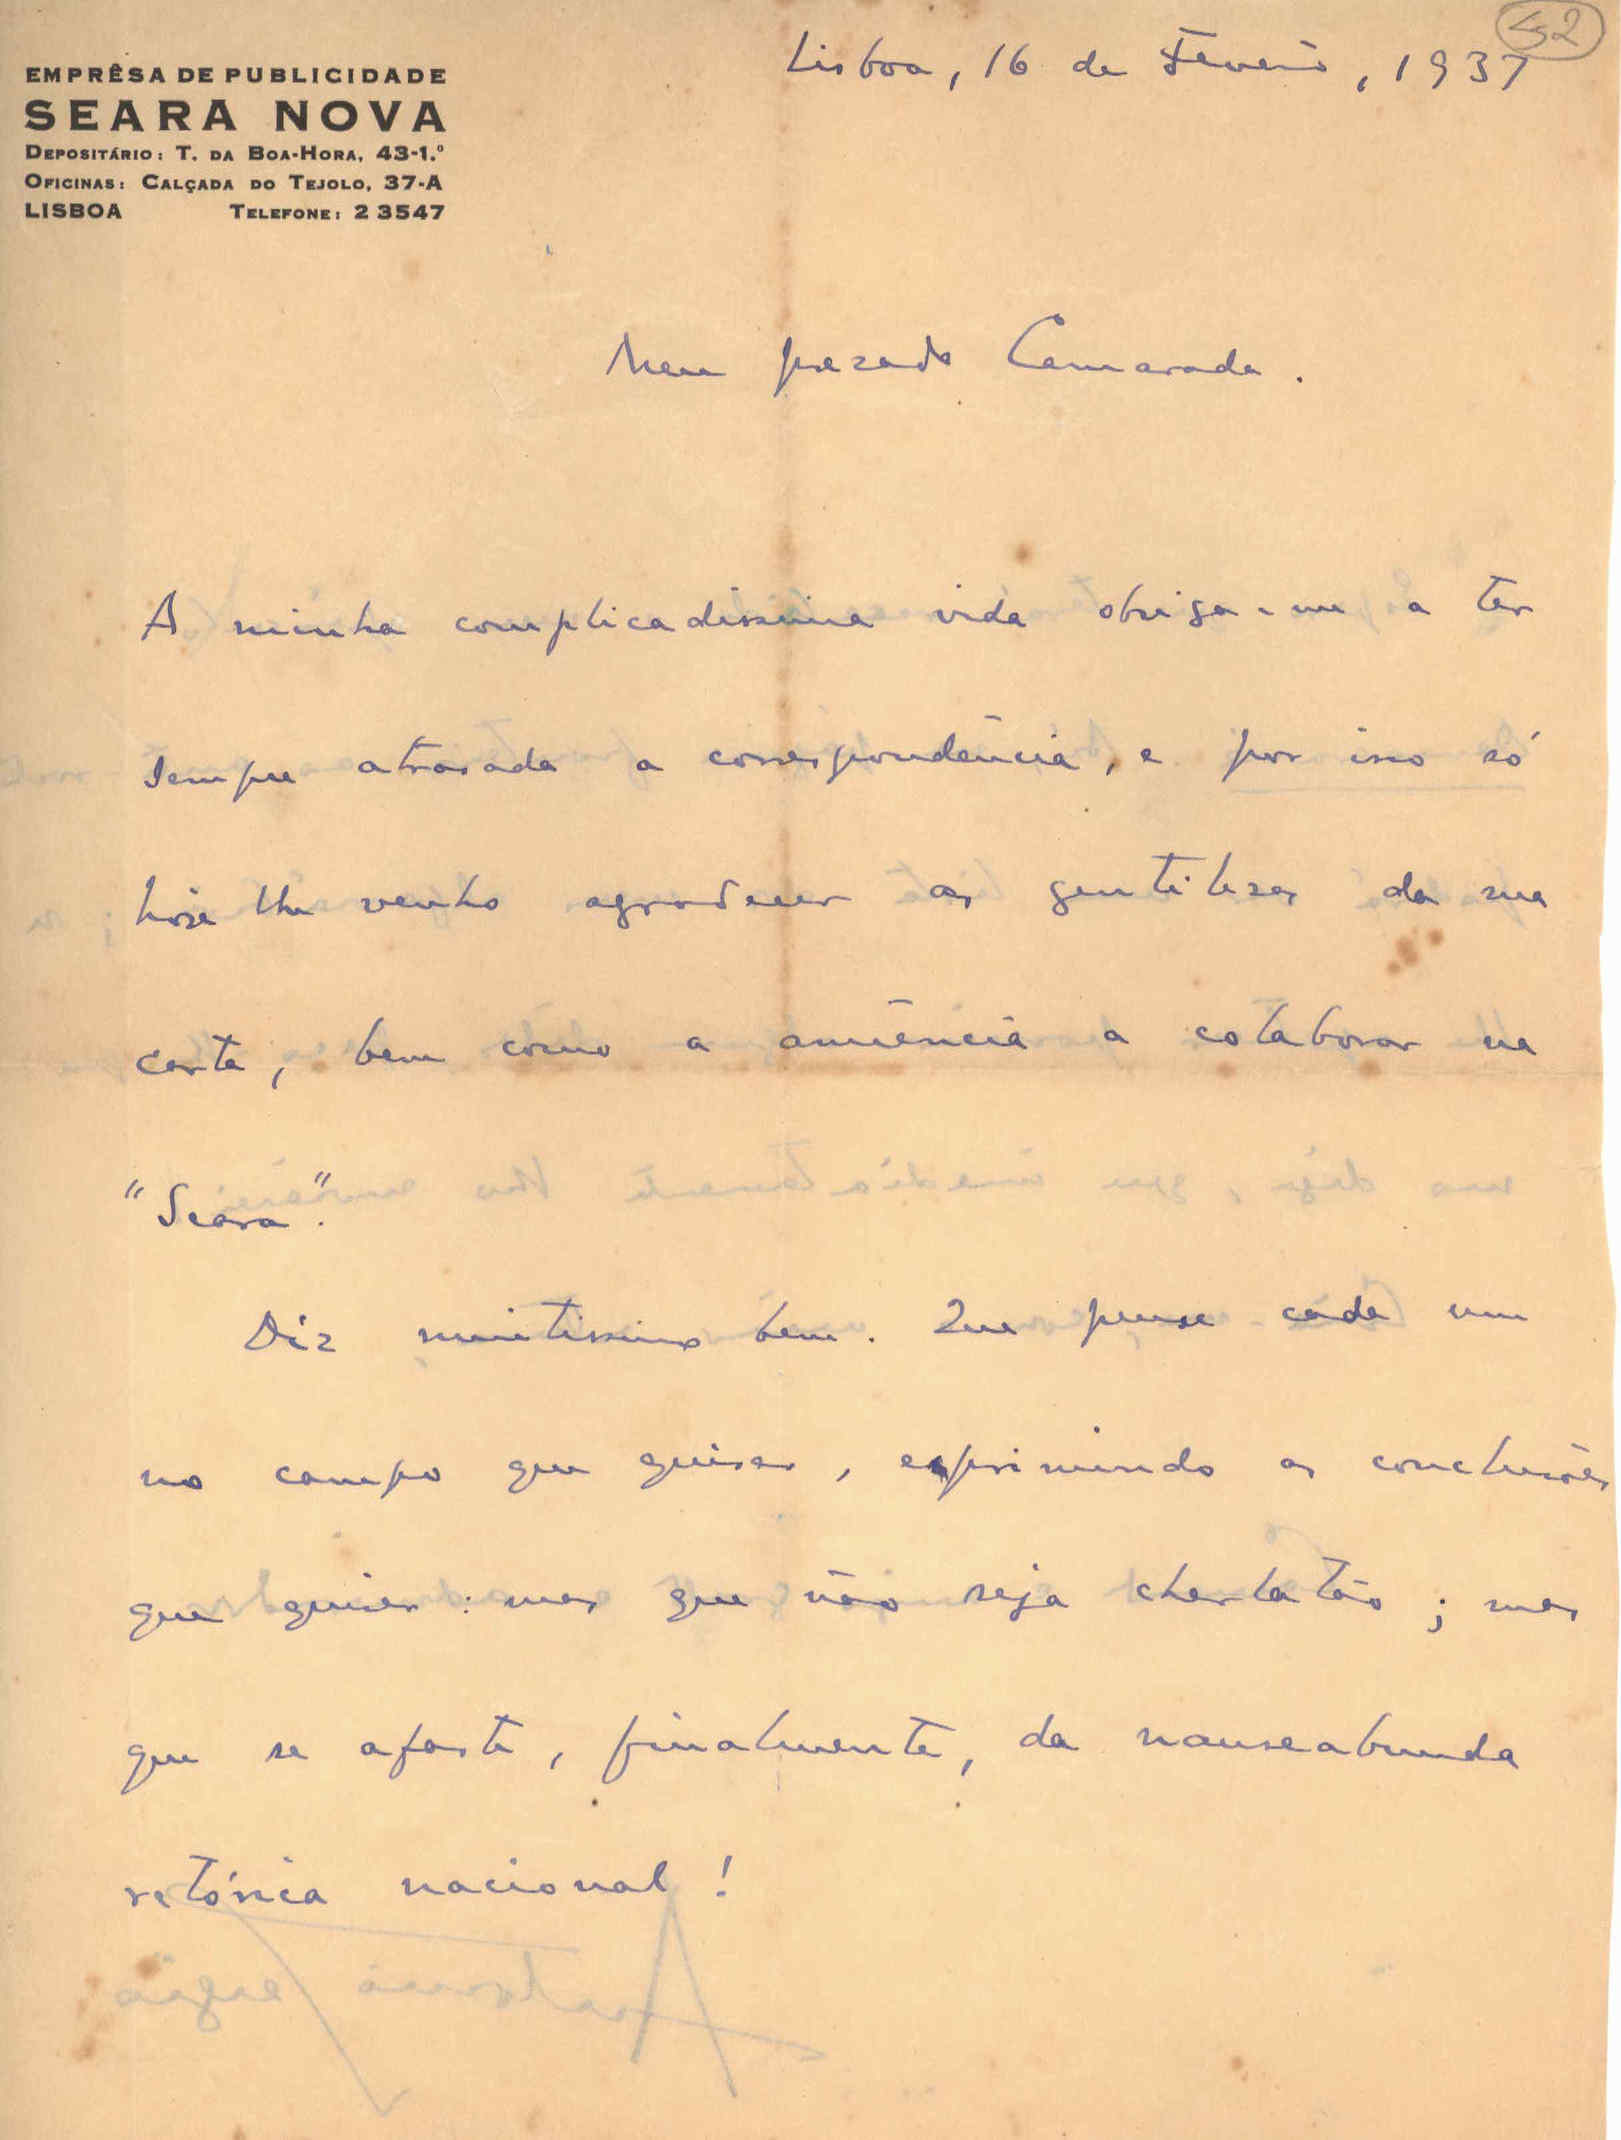 52
Lisboa, 16 de Fevereiro, 1937
EMPRÊSA DE PUBLICIDADE
SEARA NOVA
DEPOSITÁRIO: T. DA BOA-HORA, 43-1.º
OFICINAS: CALÇADA DO TEJOLO, 37-A
LISBOA TELEFONE: 2 3547
Meu prezado Camarada.
A minha complicadíssima vida obriga-me a ter
sempre atrasada a correspondência, e por isso só
hoje lhe venho agradecer as gentilezas da sua
carta, bem como a anuência a colaborar na
"Seara".
Diz muitíssimo bem. Que pense cada um
no campo que quiser, exprimindo as conclusões
que quiser: mas que não seja charlatão; mas
que se afaste, finalmente, da nauseabunda
retórica nacional!